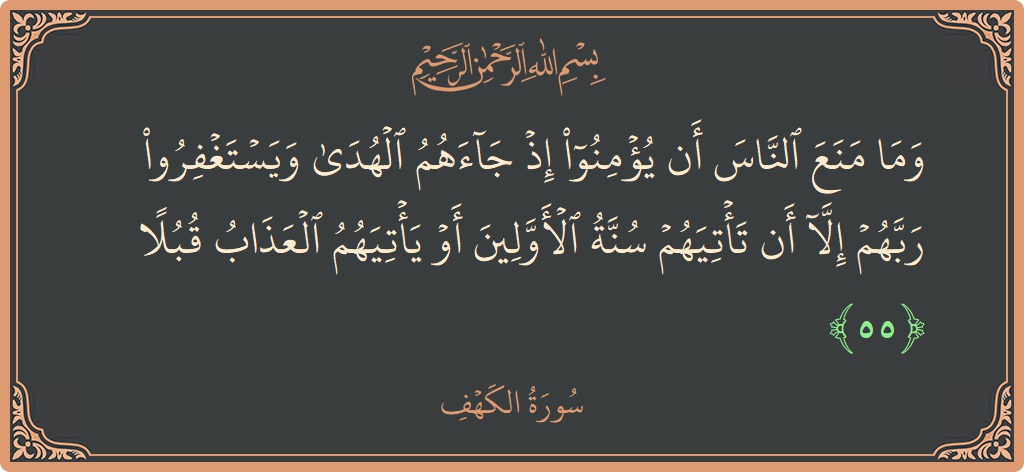 بِسْمِ اللَّهِ الرَّحْمَٰنِ الرَّحِيمِ
وَمَا مَنَعَ ٱلنَّاسَ أَن يُؤْمِنُوٓا۟ إِذْ جَآءَهُمُ ٱلْهُدَىٰ وَيَسْتَغْفِرُوا۟
رَبَّهُمْ إِلَّآ أَن تَأْتِيَهُمْ سُنَّةُ ٱلْأَوَّلِينَ أَوْ يَأْتِيَهُمُ ٱلْعَذَابُ قُبُلًا
﴿٥٥﴾
سُورَةُ الكَهْفِ